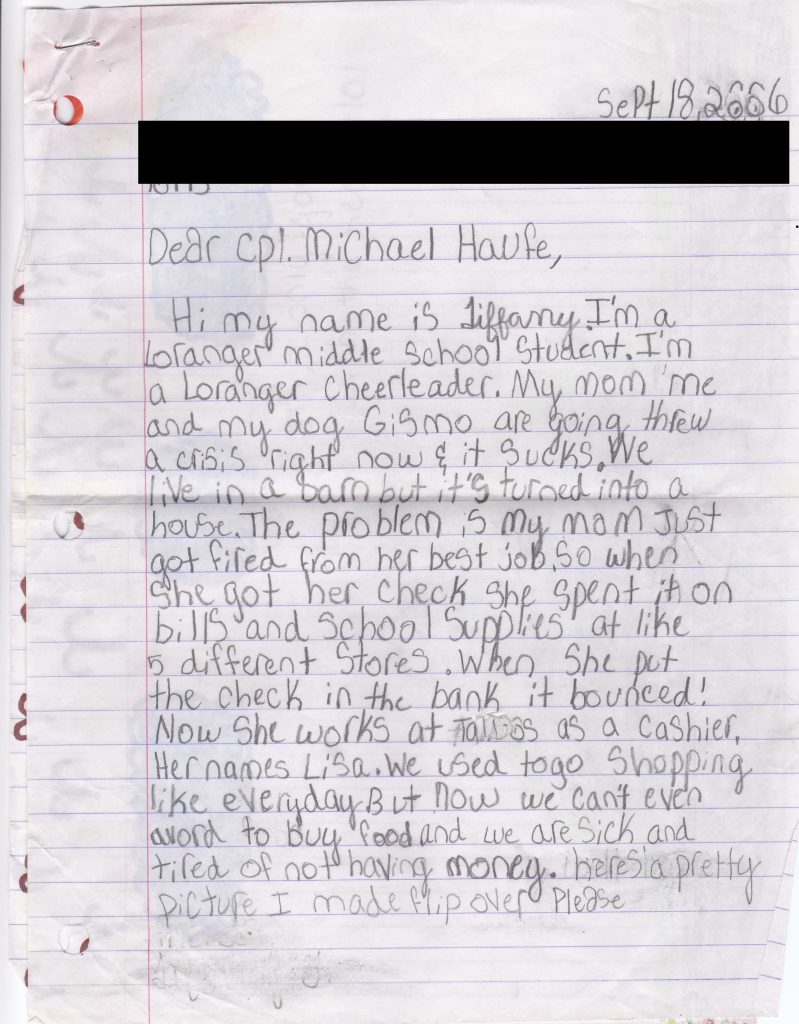 Sept 18, 2006
Dear Cpl. Michael Haufe,
Hi my name is Tiffany. I'm a
Loranger middle school student. I'm
a Loranger Cheerleader. My mom me
and my dog Gismo are going threw
a crisis right now & it sucks. We
live in a barn but it's turned into a
house. The problem is my mom Just
got fired from her best job. So when
she got her check she spent it on
bills and School Supplies at like
5 different Stores. When she put
the check in the bank it bounced!
Now she works at as a cashier.
Her names Lisa. We used to go Shopping
like everyday. But now we can't even
avord to buy food and we are sick and
tired of not having money. heres a pretty
picture I made flip over Please